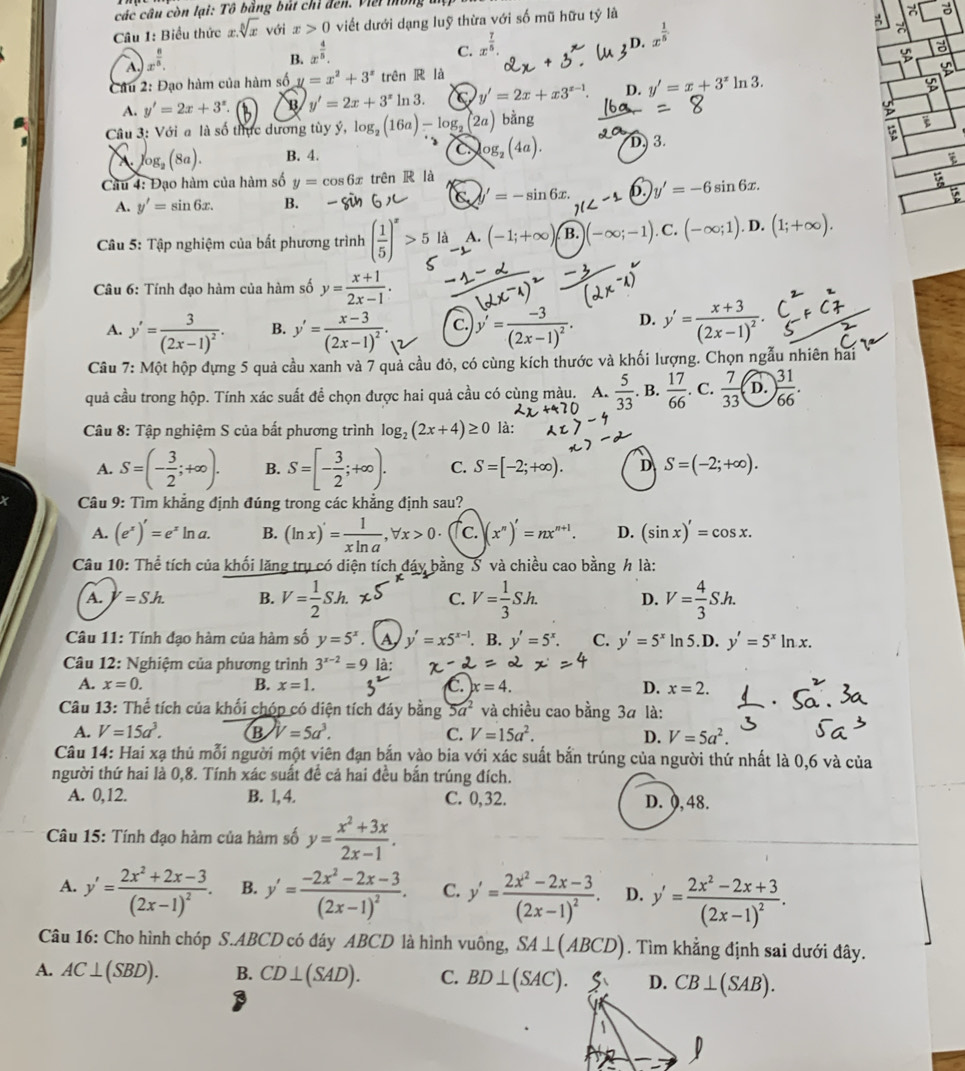 các câu còn lại: Tô bằng bút chì đen.
Câu 1: Biểu thức x.⁵√x với x > 0 viết dưới dạng luỹ thừa với số mũ hữu tỷ là
A. x^{6/5}. B. x^{4/5}. C. x^{7/5}. D. x^{1/5}
2x + 3^x. ln 3
Câu 2: Đạo hàm của hàm số y = x² + 3^x trên ℝ là
A. y' = 2x + 3^x. B. y' = 2x + 3^x ln 3. C. y' = 2x + x3^{x-1}. D. y' = x + 3^x ln 3.
16a/2a = 8
Câu 3: Với a là số thực dương tùy ý, log₂(16a) − log₂(2a) bằng
A. log₂(8a). B. 4. C. log₂(4a). D. 3.
Câu 4: Đạo hàm của hàm số y = cos 6x trên ℝ là
A. y' = sin 6x. B. -sin 6x C. y' = −sin 6x. D. y' = −6 sin 6x.
x < -1
Câu 5: Tập nghiệm của bất phương trình (1/5)^x > 5 là A. (−1; +∞). B. (−∞; −1). C. (−∞; 1). D. (1; +∞).
5
Câu 6: Tính đạo hàm của hàm số y = (x+1)/(2x−1).
(-1-2)/(2x-1)² -3/(2x-1)²
A. y' = 3/(2x−1)². B. y' = (x−3)/(2x−1)². C. y' = −3/(2x−1)². D. y' = (x+3)/(2x−1)².
Câu 7: Một hộp đựng 5 quả cầu xanh và 7 quả cầu đỏ, có cùng kích thước và khối lượng. Chọn ngẫu nhiên hai
quả cầu trong hộp. Tính xác suất để chọn được hai quả cầu có cùng màu. A. 5/33. B. 17/66. C. 7/33 D. 31/66.
Câu 8: Tập nghiệm S của bất phương trình log₂(2x+4) ≥ 0 là:
x > -2
A. S = (−3/2; +∞). B. S = [−3/2; +∞). C. S = [−2; +∞). D. S = (−2; +∞).
Câu 9: Tìm khẳng định đúng trong các khẳng định sau?
A. (e^x)' = e^x ln a. B. (ln x)' = 1/(x ln a), ∀x > 0. C. (x^n)' = nx^{n+1}. D. (sin x)' = cos x.
Câu 10: Thể tích của khối lăng trụ có diện tích đáy bằng S và chiều cao bằng h là:
A. V = S.h. B. V = 1/2 S.h. C. V = 1/3 S.h. D. V = 4/3 S.h.
Câu 11: Tính đạo hàm của hàm số y = 5^x. A. y' = x5^{x−1}. B. y' = 5^x. C. y' = 5^x ln 5. D. y' = 5^x ln x.
Câu 12: Nghiệm của phương trình 3^{x−2} = 9 là: x - 2 = 2 x = 4
A. x = 0. B. x = 1. 3² C. x = 4. D. x = 2.
Câu 13: Thể tích của khối chóp có diện tích đáy bằng 5a² và chiều cao bằng 3a là:
1/3 . 5a². 3a
A. V = 15a³. B. V = 5a³. C. V = 15a². D. V = 5a².
5a³
Câu 14: Hai xạ thủ mỗi người một viên đạn bắn vào bia với xác suất bắn trúng của người thứ nhất là 0,6 và của
người thứ hai là 0,8. Tính xác suất để cả hai đều bắn trúng đích.
A. 0,12. B. 1,4. C. 0,32. D. 0,48.
Câu 15: Tính đạo hàm của hàm số y = (x²+3x)/(2x−1).
A. y' = (2x²+2x−3)/(2x−1)². B. y' = (−2x²−2x−3)/(2x−1)². C. y' = (2x²−2x−3)/(2x−1)². D. y' = (2x²−2x+3)/(2x−1)².
Câu 16: Cho hình chóp S.ABCD có đáy ABCD là hình vuông, SA ⊥ (ABCD). Tìm khẳng định sai dưới đây.
A. AC ⊥ (SBD). B. CD ⊥ (SAD). C. BD ⊥ (SAC). D. CB ⊥ (SAB).
S